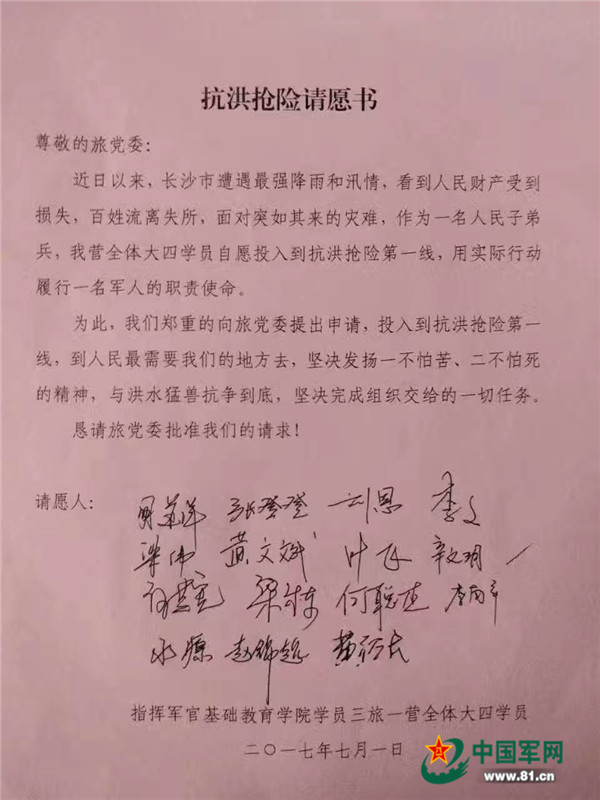 抗洪抢险请愿书
尊敬的旅党委：
近日以来，长沙市遭遇最强降雨和汛情，看到人民财产受到
损失，百姓流离失所，面对突如其来的灾难，作为一名人民子弟
兵，我营全体大四学员自愿投入到抗洪抢险第一线，用实际行动
履行一名军人的职责使命。
为此，我们郑重的向旅党委提出申请，投入到抗洪抢险第一
线，到人民最需要我们的地方去，坚决发扬一不怕苦、二不怕死
的精神，与洪水猛兽抗争到底，坚决完成组织交给的一切任务。
恳请旅党委批准我们的请求！
请愿人： 张登登 刘恩 李文
梁伟 黄文斌 叶飞
梁栋 何聪
永源 赵锦超
指挥军官基础教育学院学员三旅一营全体大四学员
二〇一七年七月一日
中国军网
www.81.cn